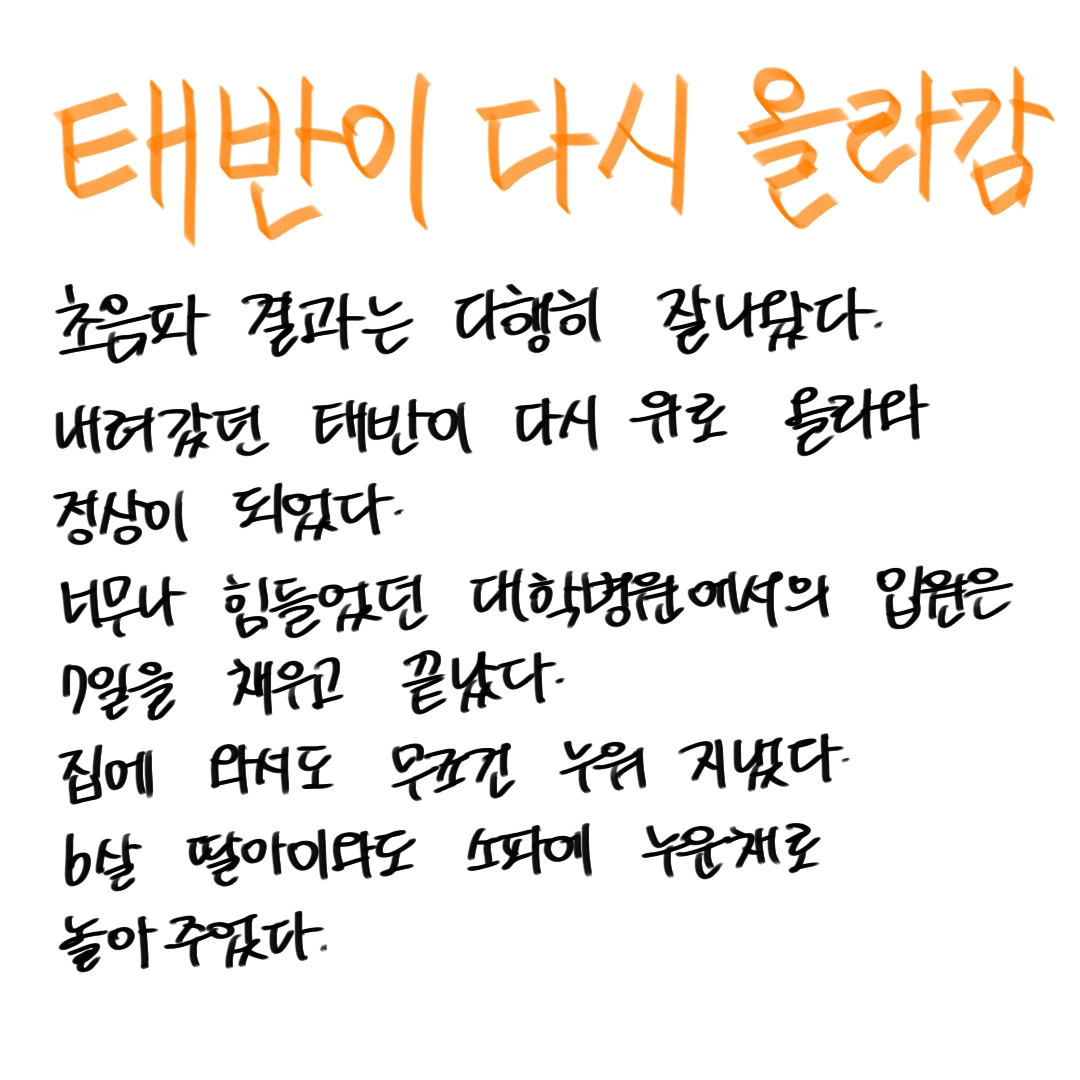 태반이 다시 올라감
초음파 결과는 다행히 잘나왔다.
내려갔던 태반이 다시 위로 올라와
정상이 되었다.
너무나 힘들었던 대학병원에서의 입원은
7일을 채우고 끝났다.
집에 와서도 무조건 누워 지냈다.
6살 딸아이와도 소파에 누운채로
놀아 주었다.